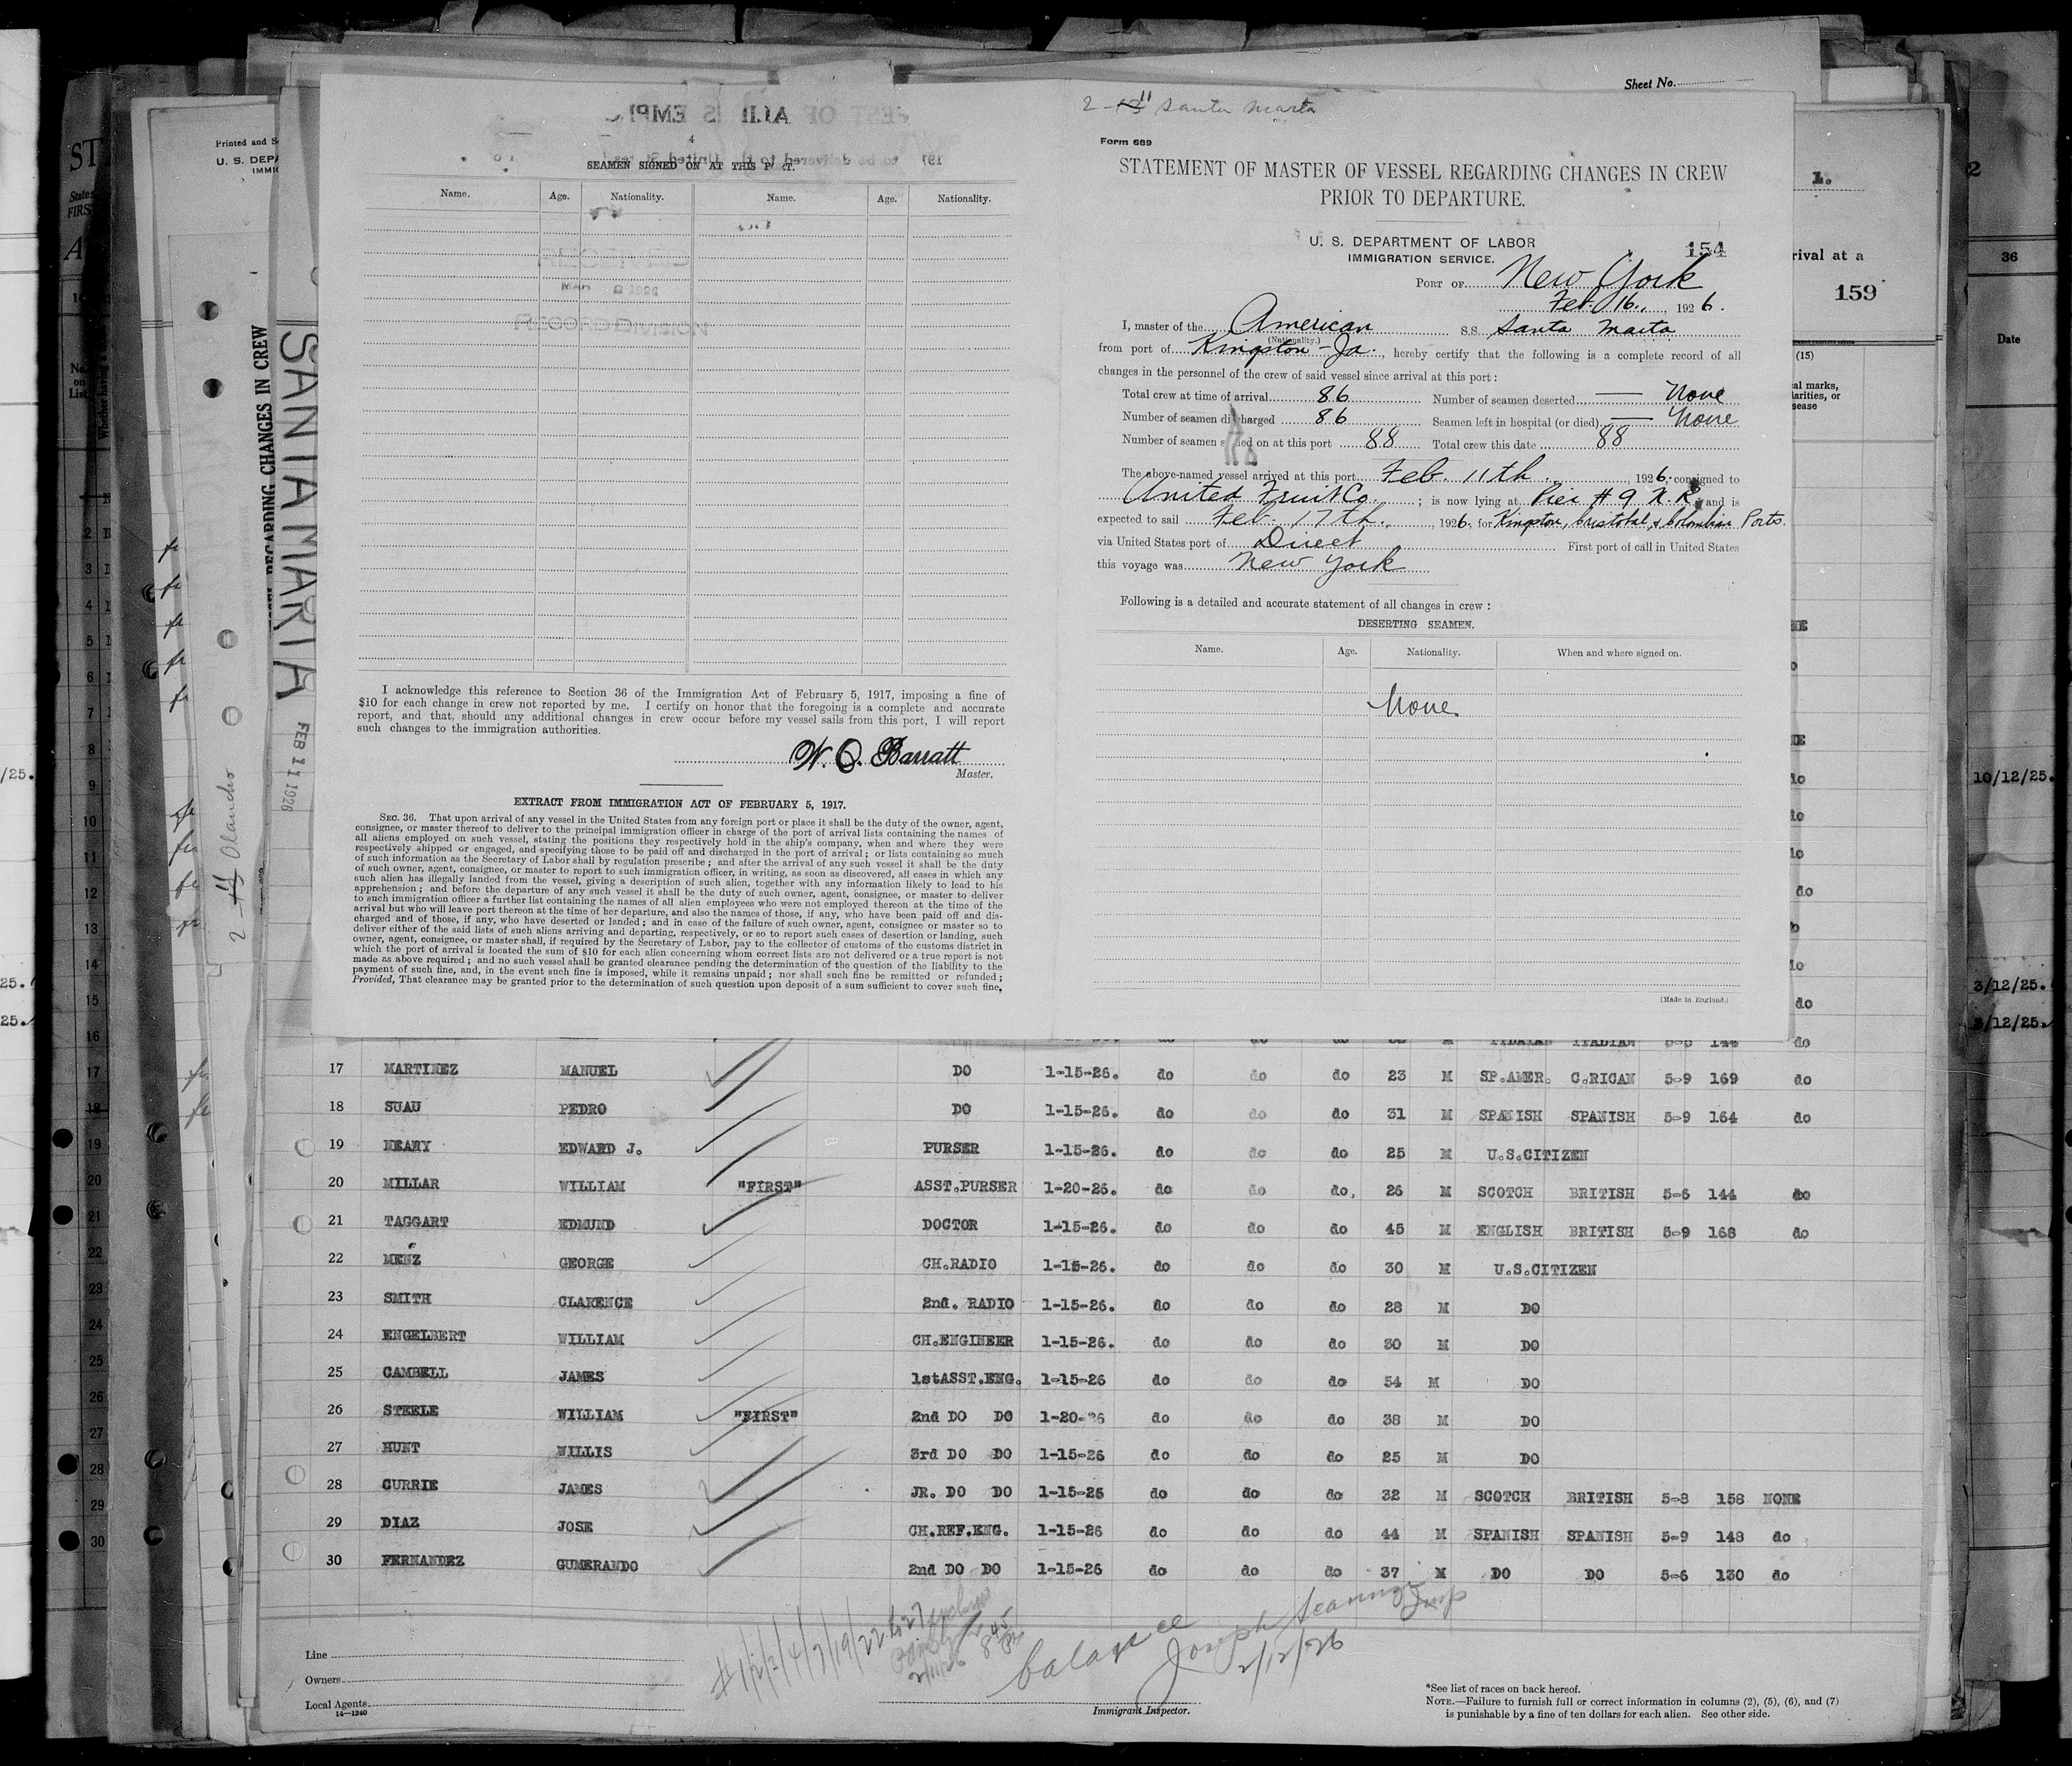 Sheet No.
2-11 Santa Marta
Form 689
STATEMENT OF MASTER OF VESSEL REGARDING CHANGES IN CREW
PRIOR TO DEPARTURE.
U. S. DEPARTMENT OF LABOR
IMMIGRATION SERVICE.
154
PORT OF New York
Feb. 16., 1926.
I, master of the American S.S. Santa Marta
(Nationality.)
from port of Kingston - Ja., hereby certify that the following is a complete record of all
changes in the personnel of the crew of said vessel since arrival at this port:
Total crew at time of arrival 86 Number of seamen deserted — None
Number of seamen discharged 86 Seamen left in hospital (or died) — None
Number of seamen signed on at this port 88 Total crew this date 88
The above-named vessel arrived at this port Feb. 11th 1926, consigned to
United Fruit Co. ; is now lying at Pier # 9 N. R. and is
expected to sail Feb. 17th. 1926. for Kingston, Cristobal, & Colombian Ports.
via United States port of Direct First port of call in United States
this voyage was New York
Following is a detailed and accurate statement of all changes in crew:
DESERTING SEAMEN.
Name. Age. Nationality. When and where signed on.
None
(Made in England.)
4
SEAMEN SIGNED ON AT THIS PORT.
Name. Age. Nationality. Name. Age. Nationality.
I acknowledge this reference to Section 36 of the Immigration Act of February 5, 1917, imposing a fine of
$10 for each change in crew not reported by me. I certify on honor that the foregoing is a complete and accurate
report, and that, should any additional changes in crew occur before my vessel sails from this port, I will report
such changes to the immigration authorities.
W. O. Barratt
Master.
EXTRACT FROM IMMIGRATION ACT OF FEBRUARY 5, 1917.
SEC. 36. That upon arrival of any vessel in the United States from any foreign port or place it shall be the duty of the owner, agent,
consignee, or master thereof to deliver to the principal immigration officer in charge of the port of arrival lists containing the names of
all aliens employed on such vessel, stating the positions they respectively hold in the ship's company, when and where they were
respectively shipped or engaged, and specifying those to be paid off and discharged in the port of arrival; or lists containing so much
of such information as the Secretary of Labor shall by regulation prescribe; and after the arrival of any such vessel it shall be the duty
of such owner, agent, consignee, or master to report to such immigration officer, in writing, as soon as discovered, all cases in which any
such alien has illegally landed from the vessel, giving a description of such alien, together with any information likely to lead to his
apprehension; and before the departure of any such vessel it shall be the duty of such owner, agent, consignee, or master to deliver
to such immigration officer a further list containing the names of all alien employees who were not employed thereon at the time of the
arrival but who will leave port thereon at the time of her departure, and also the names of those, if any, who have been paid off and dis-
charged and of those, if any, who have deserted or landed; and in case of the failure of such owner, agent, consignee or master so to
deliver either of the said lists of such aliens arriving and departing, respectively, or so to report such cases of desertion or landing, such
owner, agent, consignee, or master shall, if required by the Secretary of Labor, pay to the collector of customs of the customs district in
which the port of arrival is located the sum of $10 for each alien concerning whom correct lists are not delivered or a true report is not
made as above required; and no such vessel shall be granted clearance pending the determination of the question of the liability to the
payment of such fine, and, in the event such fine is imposed, while it remains unpaid; nor shall such fine be remitted or refunded;
Provided, That clearance may be granted prior to the determination of such question upon deposit of a sum sufficient to cover such fine,
SANTA MARTA
FEB 11 1926
REGARDING CHANGES IN CREW
2-11 Olancho
1.
rival at a
159
36
Date
10/12/25.
3/12/25.
17 MARTINEZ MANUEL DO 1-15-26. do do do 23 M SP.AMER. C.RICAN 5-9 169 do
18 SUAU PEDRO DO 1-15-26. do do do 31 M SPANISH SPANISH 5-9 164 do
19 NEARY EDWARD J. PURSER 1-15-26. do do do 25 M U.S.CITIZEN
20 MILLAR WILLIAM "FIRST" ASST.PURSER 1-20-26. do do do, 26 M SCOTCH BRITISH 5-6 144 do
21 TAGGART EDMUND DOCTOR 1-15-26. do do do 45 M ENGLISH BRITISH 5-9 168 do
22 MENZ GEORGE CH.RADIO 1-15-26. do do do 30 M U.S.CITIZEN
23 SMITH CLARENCE 2nd. RADIO 1-15-26. do do do 28 M DO
24 ENGELBERT WILLIAM CH.ENGINEER 1-15-26. do do do 30 M DO
25 CAMBELL JAMES 1stASST.ENG. 1-15-26 do do do 54 M DO
26 STEELE WILLIAM "FIRST" 2nd DO DO 1-20-26 do do do 38 M DO
27 HUNT WILLIS 3rd DO DO 1-15-26 do do do 25 M DO
28 CURRIE JAMES JR. DO DO 1-15-26 do do do 32 M SCOTCH BRITISH 5-8 158 NONE
29 DIAZ JOSE CH.REF.ENG. 1-15-26 do do do 44 M SPANISH SPANISH 5-9 148 do
30 FERNANDEZ GUMERANDO 2nd DO DO 1-15-26 do do do 37 M DO DO 5-6 130 do
balance Joseph
2/12/26
Line
Owners
Local Agents
14—1240
Immigrant Inspector.
*See list of races on back hereof.
NOTE.—Failure to furnish full or correct information in columns (2), (5), (6), and (7)
is punishable by a fine of ten dollars for each alien. See other side.